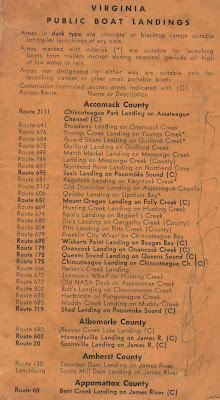 VIRGINIA
PUBLIC BOAT LANDINGS
Areas in dark type are concrete or blacktop ramps suitable
for trailer launchings at any time.
Areas marked with asterisk (*) are suitable for launching
boats from trailers except during seasonal periods of high
or low water or rain.
Areas not designated in either way are suitable only for
launching canoes or other small portable boats.
Commission-controlled access areas indicated with (C)
Access Route Name or Description
Accomack County
Route 2111 Chincoteague Park Landing on Assateague
Channel (C)
Route 641 Broadway Landing on Onancock Creek
Route 676 Young Creek Landing on Youngs Creek*
Route 684 Landing on Guilford Creek*
Route 675 Guilford Landing on Guilford Creek
Route 698 Marsh Market Landing on Messongo Creek
Route 788 Landing on Messongo Creek (County)
Route 691 Northeast Point Landing on Pocomoke River
Route 695 Saxis Landing on Pocomoke Sound (C)
Route 681 Landing on
Route 2112 Old Dominion Landing on Assateague Channel
Route 606 Quinby Landing on Upshurs Bay*
Route 651 Mount Oregon Landing on Folly Creek (C)
Route 669 Hunting Creek Landing on Hunting Creek
Route 674 Landing on Bagwell's Creek
Route 680 Landing on Gargathy Creek (County)
Route 804 Landing on Pitts Creek (County)
Route 679 Franklin City Wharf on Chincoteague Bay
Route 695 Wisharts Point Landing on Bogues Bay (C)
Route 179 Onancock Landing on Onancock Creek (C)
Route 175 Queens Sound Landing on Queens Sound (C)
Route 175 Chincoteague Landing on Chincoteague Ch. (C)
Route 661 Parker's Creek Landing
Route 670 Johnson's Wharf on Hunting Creek
Route 672 Old NASA Dock on Assawoman Creek
Route 802 Bull's Landing on Chesconessex Creek
Route 630 Harborton on Pungoteague Creek
Route 685 Muddy Creek Landing on Muddy Creek
Route 719 Shad Landing on Pocomoke Sound (C)
Albemarle County
Route 680 Beaver Creek Lake Landing (C)
Route 602 Howardsville Landing on James R. (C)
Route 20 Scottsville Landing on James R. (C)
Amherst County
Route 130 Snowden Dam Landing on James River
Lynchburg Scotts Mill Dam Landing on James River
Appomattox County
Route 60 Bent Creek Landing on James River (C)